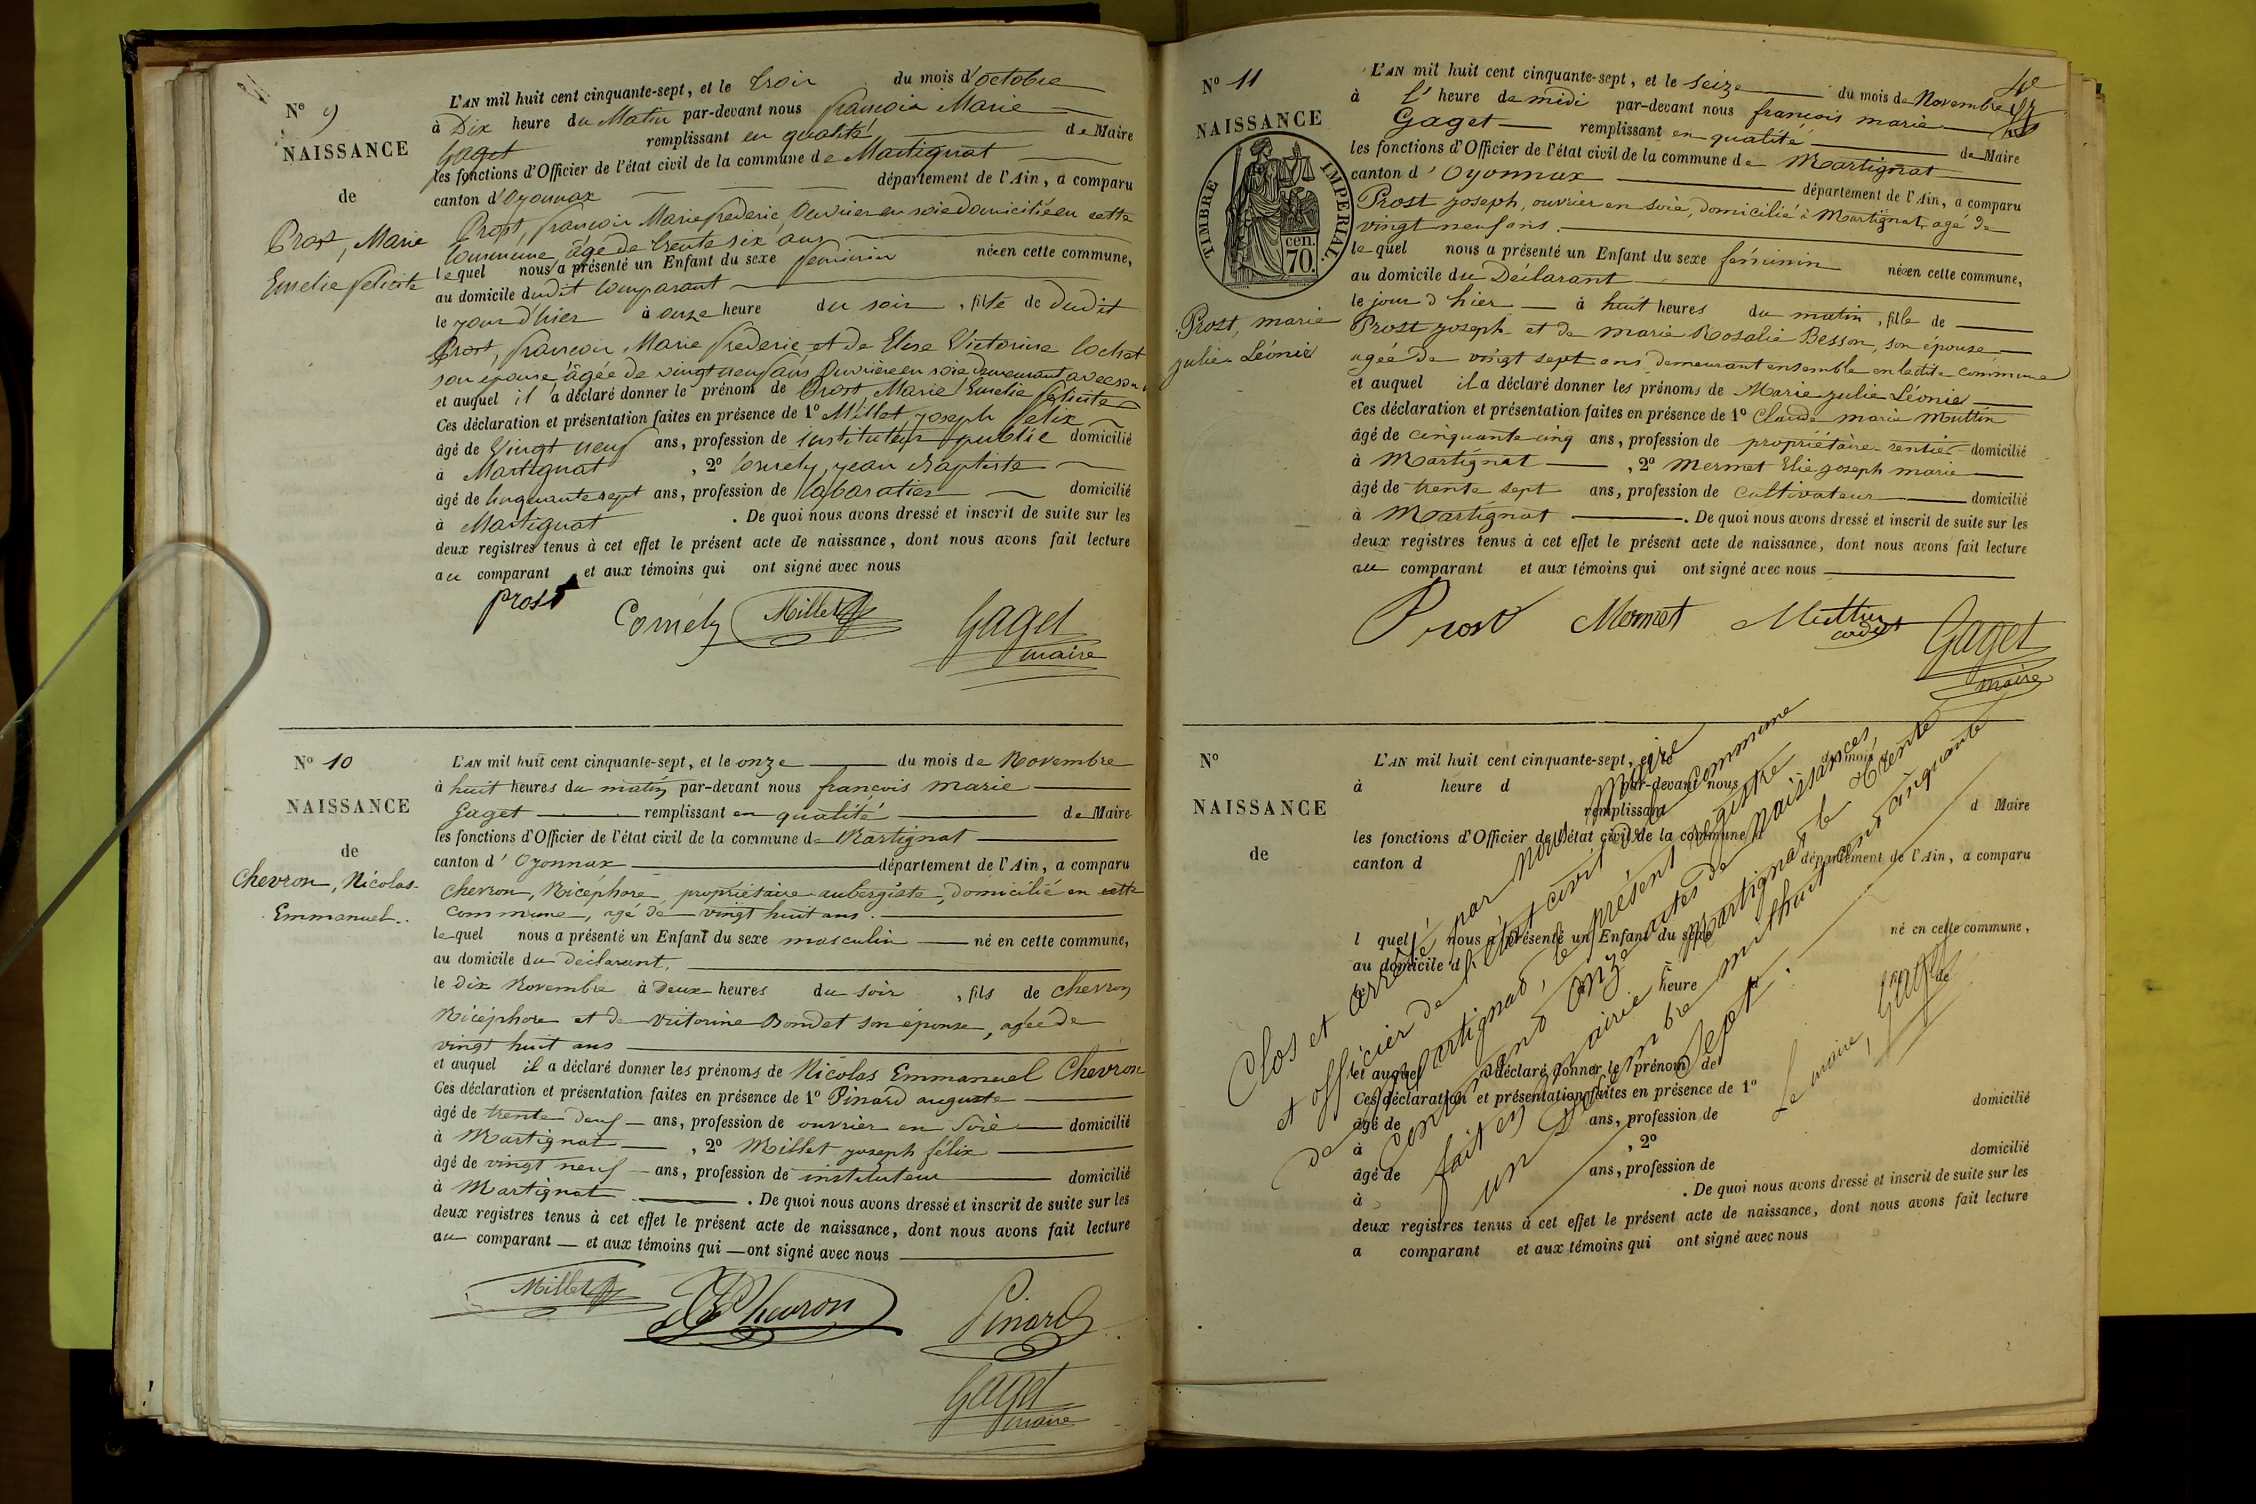 N° 9
NAISSANCE
de
Prost, Marie
Emelie felicite
L'AN mil huit cent cinquante-sept, et le trois du mois d'octobre
à Dix heure du Matin par-devant nous françois Marie
Gaget remplissant en qualité de Maire
les fonctions d'Officier de l'état civil de la commune de Martignat
canton d'Oyonnax département de l'Ain, a comparu
Prost, françois Marie frederic Ouvrier en soie domicilié en cette
commune, âgé de trente six ans
lequel nous a présenté un Enfant du sexe feminin née en cette commune,
au domicile dudit comparant
le jour d'hier à onze heure du soir, fille de dudit
Prost, françois Marie frederic et de Elise Victorine Cochet
son épouse, âgée de vingt neuf ans Ouvrière en soie demeurant avec son
et auquel il a déclaré donner le prénom de Prost, Marie Emelie felicite
Ces déclaration et présentation faites en présence de 1° Millet joseph felix
âgé de Vingt neuf ans, profession de instituteur public domicilié
à Martignat, 2° Comely, jean Baptiste
âgé de Cinquante sept ans, profession de Cabaratier domicilié
à Martignat. De quoi nous avons dressé et inscrit de suite sur les
deux registres tenus à cet effet le présent acte de naissance, dont nous avons fait lecture
au comparant et aux témoins qui ont signé avec nous
prost Comely Millet Gaget
maire
N° 10
NAISSANCE
de
Chevron, Nicolas
Emmanuel.
L'AN mil huit cent cinquante-sept, et le onze du mois de Novembre
à huit heures du matin par-devant nous françois marie
Gaget remplissant en qualité de Maire
les fonctions d'Officier de l'état civil de la commune de Martignat
canton d'Oyonnax département de l'Ain, a comparu
Chevron, Nicéphore, propriétaire aubergiste, domicilié en cette
commune, agé de vingt huit ans.
lequel nous a présenté un Enfant du sexe masculin né en cette commune,
au domicile du déclarant.
le Dix Novembre à Deux heures du soir, fils de chevron
Nicéphore et de Victorine Bondet son épouse, agée de
vingt huit ans
et auquel il a déclaré donner les prénoms de Nicolas Emmanuel Chevron
Ces déclaration et présentation faites en présence de 1° Pinard auguste
âgé de trente deux ans, profession de ouvrier en Soie domicilié
à Martignat, 2° Millet joseph félix
âgé de vingt neuf ans, profession de instituteur domicilié
à Martignat. De quoi nous avons dressé et inscrit de suite sur les
deux registres tenus à cet effet le présent acte de naissance, dont nous avons fait lecture
au comparant et aux témoins qui ont signé avec nous
Millet Chevron Pinard
Gaget
maire
N° 11
NAISSANCE
TIMBRE IMPERIAL.
cen.
70.
Prost, marie
julie Léonie
L'AN mil huit cent cinquante-sept, et le seize du mois de Novembre
à l' heure de midi par-devant nous françois marie
Gaget remplissant en qualité de Maire
les fonctions d'Officier de l'état civil de la commune de Martignat
canton d'Oyonnax département de l'Ain, a comparu
Prost joseph, ouvrier en soie, domicilié à Martignat, agé de
vingt neuf ans.
lequel nous a présenté un Enfant du sexe féminin née en cette commune,
au domicile du Déclarant
le jour d'hier à huit heures du matin, fille de
Prost joseph et de marie Rosalie Besson, son épouse
agée de vingt sept ans demeurant ensemble en ladite commune
et auquel il a déclaré donner les prénoms de Marie julie Léonie
Ces déclaration et présentation faites en présence de 1° Claude marie Muttin
âgé de cinquante cinq ans, profession de propriétaire rentier domicilié
à Martignat, 2° Mermet Elie joseph marie
âgé de trente sept ans, profession de cultivateur domicilié
à Martignat. De quoi nous avons dressé et inscrit de suite sur les
deux registres tenus à cet effet le présent acte de naissance, dont nous avons fait lecture
au comparant et aux témoins qui ont signé avec nous
Prost Mermet Muttin
cadet
Gaget
maire
N°
NAISSANCE
de
L'AN mil huit cent cinquante-sept, et le du mois
à heure d par-devant nous
remplissant d Maire
les fonctions d'Officier de l'état civil de la commune d
canton d département de l'Ain, a comparu
l quel nous a présenté un Enfant du sexe né en cette commune,
au domicile d
le à heure fil de
et auquel a déclaré donner le prénom de
Ces déclaration et présentation faites en présence de 1°
âgé de ans, profession de domicilié
à , 2°
âgé de ans, profession de domicilié
à . De quoi nous avons dressé et inscrit de suite sur les
deux registres tenus à cet effet le présent acte de naissance, dont nous avons fait lecture
a comparant et aux témoins qui ont signé avec nous
Clos et arrêté par nous Maire
et officier de l'état civil de la commune
de Martignat, le présent registre
contenant onze actes de naissances,
fait en mairie à Martignat le trente
un Décembre mil huit cent cinquante
Sept.
Le maire, Gaget